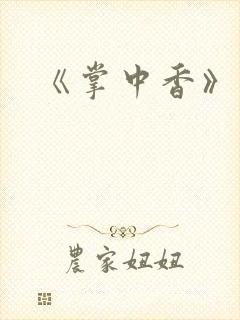 《掌中香》
農家妞妞